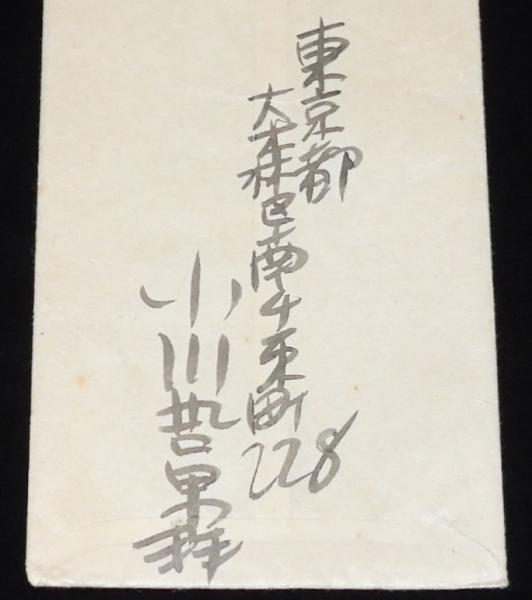 東京都
大森区南千束町228
小川哲男様